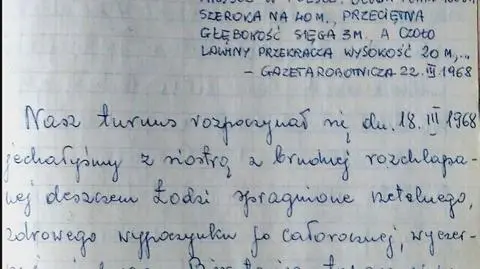 SZEROKA NA 40 M., PRZECIĘTNA
GŁĘBOKOŚĆ SIĘGA 3M., A CZOŁO
LAWINY PRZEKRACZA WYSOKOŚĆ 20 M,...
- GAZETA ROBOTNICZA 22. III 1968
Nasz turnus rozpoczynał się dn. 18. III 1968
jechałyśmy z siostrą z brudnej rozchlapa-
nej deszczem Łodzi spragnione rzetelnego,
zdrowego wypoczynku po całorocznej, wyczer-